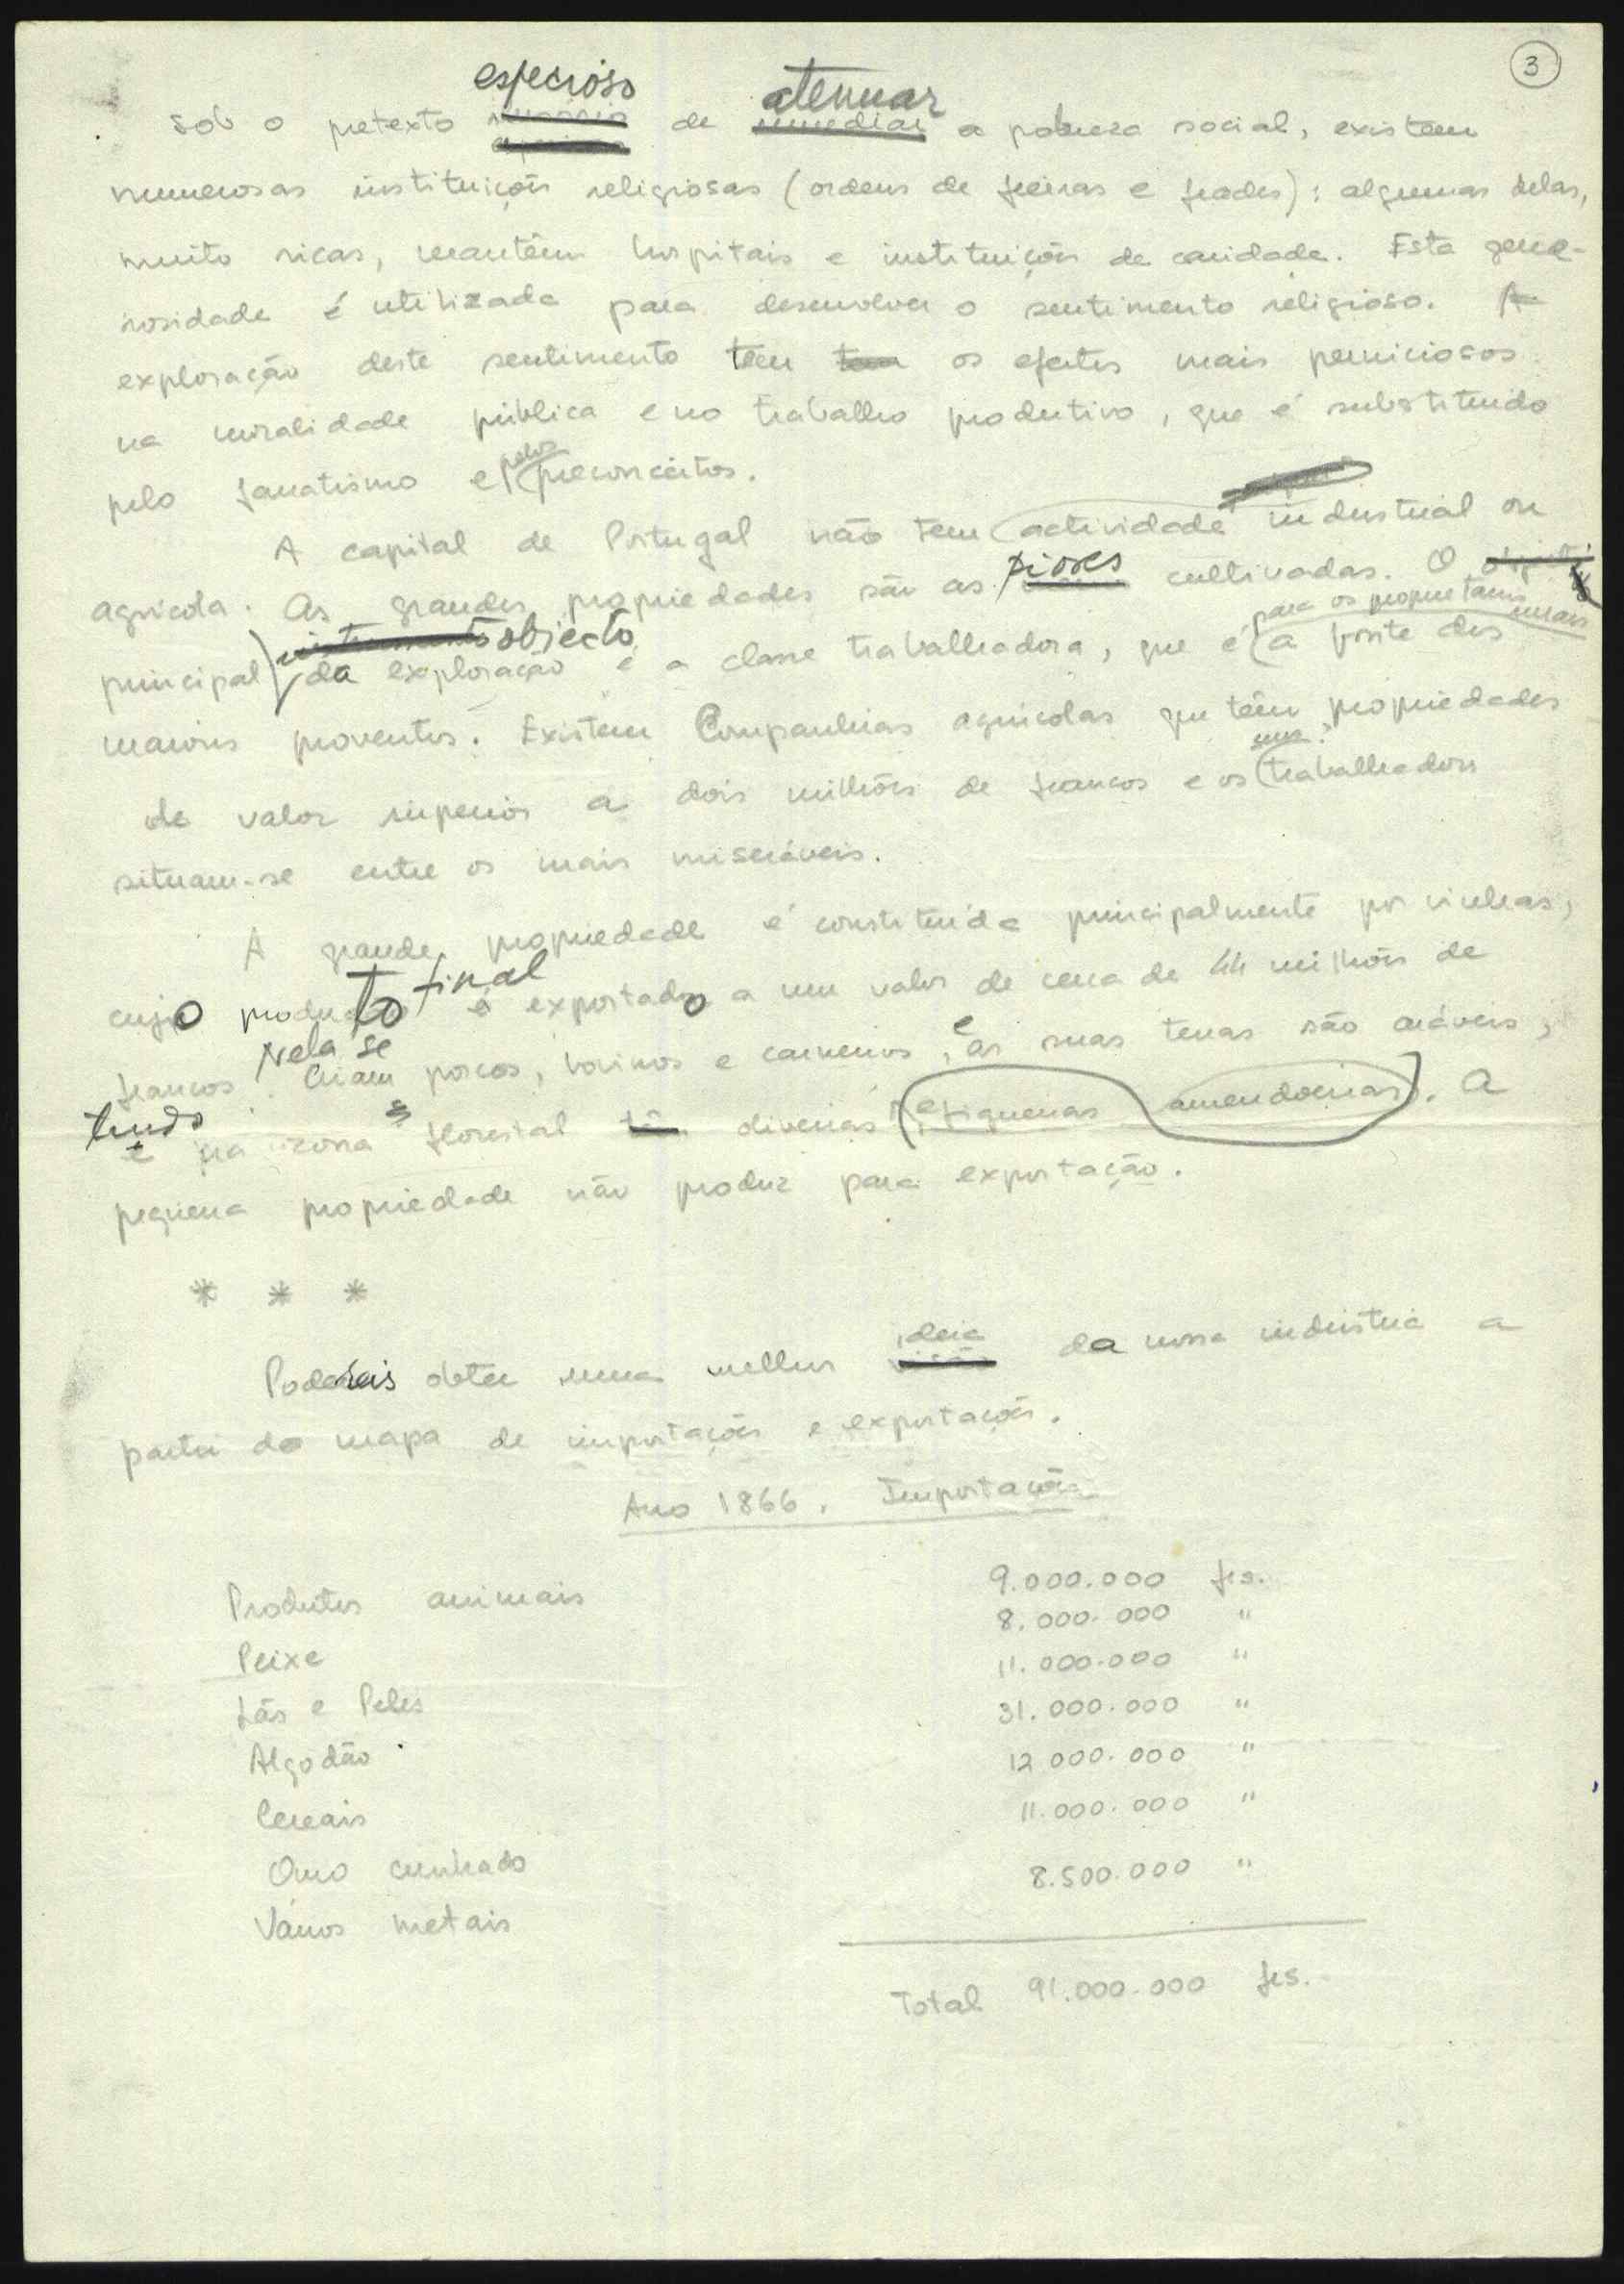 3
especioso atenuar
Sob o pretexto de remediar a pobreza social, existem
numerosas instituições religiosas (ordens de freiras e frades): algumas delas,
muito ricas, mantêm hospitais e instituições de caridade. Esta gene-
rosidade é utilizada para desenvolver o sentimento religioso. A
exploração deste sentimento tem tem os efeitos mais perniciosos
na moralidade pública e no trabalho produtivo, que é substituído
pelos
pelo fanatismo e preconceitos.
A capital de Portugal não tem actividade industrial ou
agrícola. As grandes propriedades são as piores cultivadas. O
objecto para os proprietários rurais
principal da exploração é a classe trabalhadora, que é a fonte dos
maiores proventos. Existem Companhias agrícolas que têm propriedades
seus
de valor superior a dois milhões de francos e os trabalhadores
situam-se entre os mais miseráveis.
A grande propriedade é constituída principalmente por vinhas,
final
cujo producto é exportado a um valor de cerca de 44 milhões de
Nela se
francos. Criam porcos, bovinos e carneiros, e as suas terras são aráveis,
tendo
e na zona florestal têm diversas figueiras amendoeiras. A
pequena propriedade não produz para exportação.
* * *
ideia
Podereis obter uma melhor visão da nossa indústria a
partir do mapa de importações e exportações.
Ano 1866. Importações
Produtos animais 9.000.000 frs.
Peixe 8.000.000 "
Lãs e Peles 11.000.000 "
Algodão 31.000.000 "
Cereais 12.000.000 "
Ouro cunhado 11.000.000 "
Vários metais 8.500.000 "
Total 91.000.000 frs.